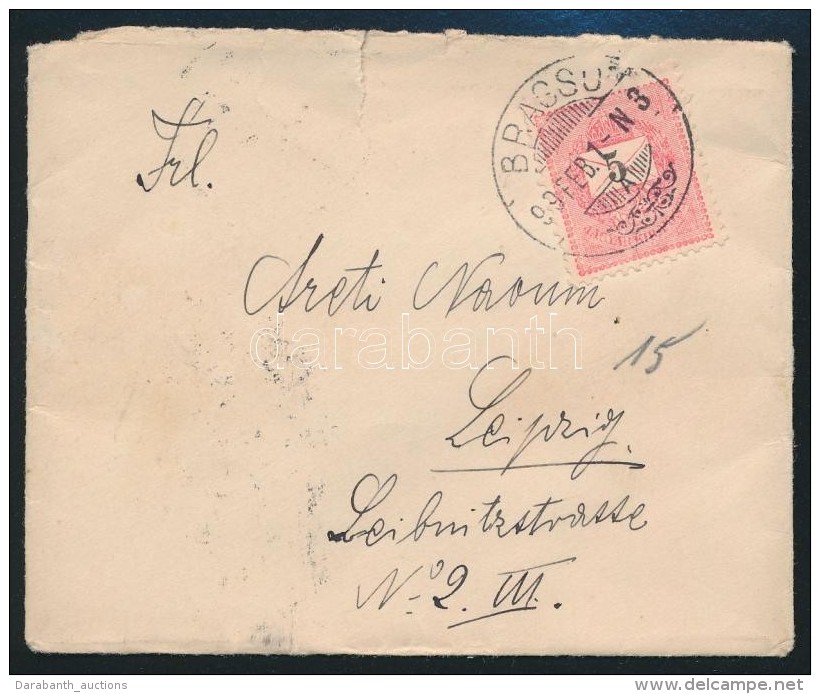 BRASSÓ
99 FEB. 1 - N 3
A
5
Frl.
Areti Naoum
darabanth
15
Leipzig.
Leibnitzstrasse
No 2. III.
Darabanth_auctions
www.delcampe.net